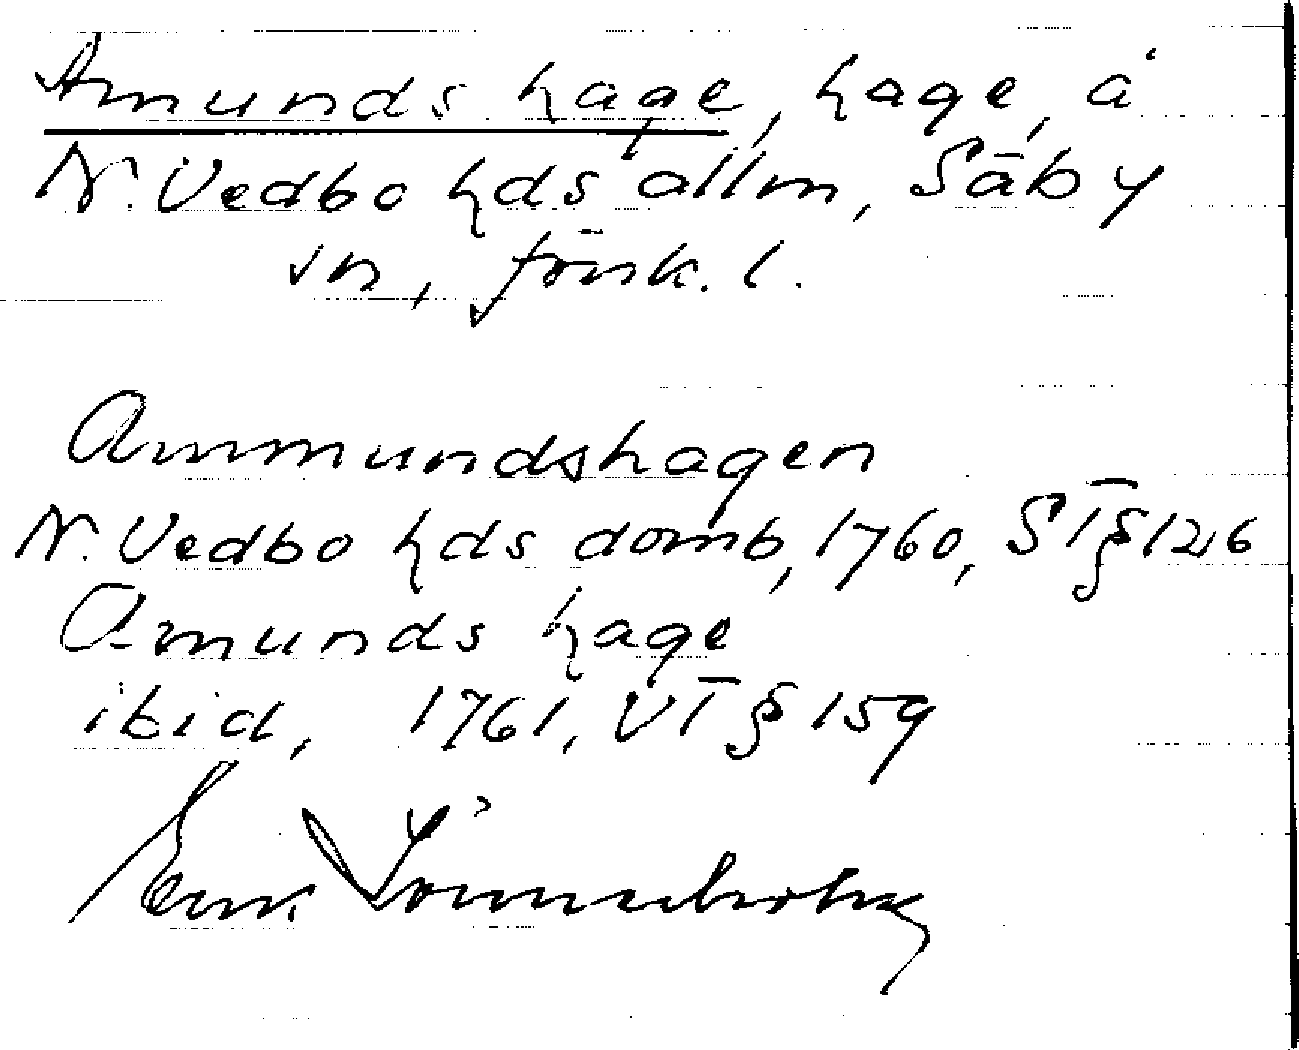 Amunds hage, hage, å
N. Vedbo hds allm, Säby
sn, Jönk. l.
Ammundshagen
N. Vedbo hds domb, 1760, S T § 126
Amunds hage
ibid, 1761, V T § 159